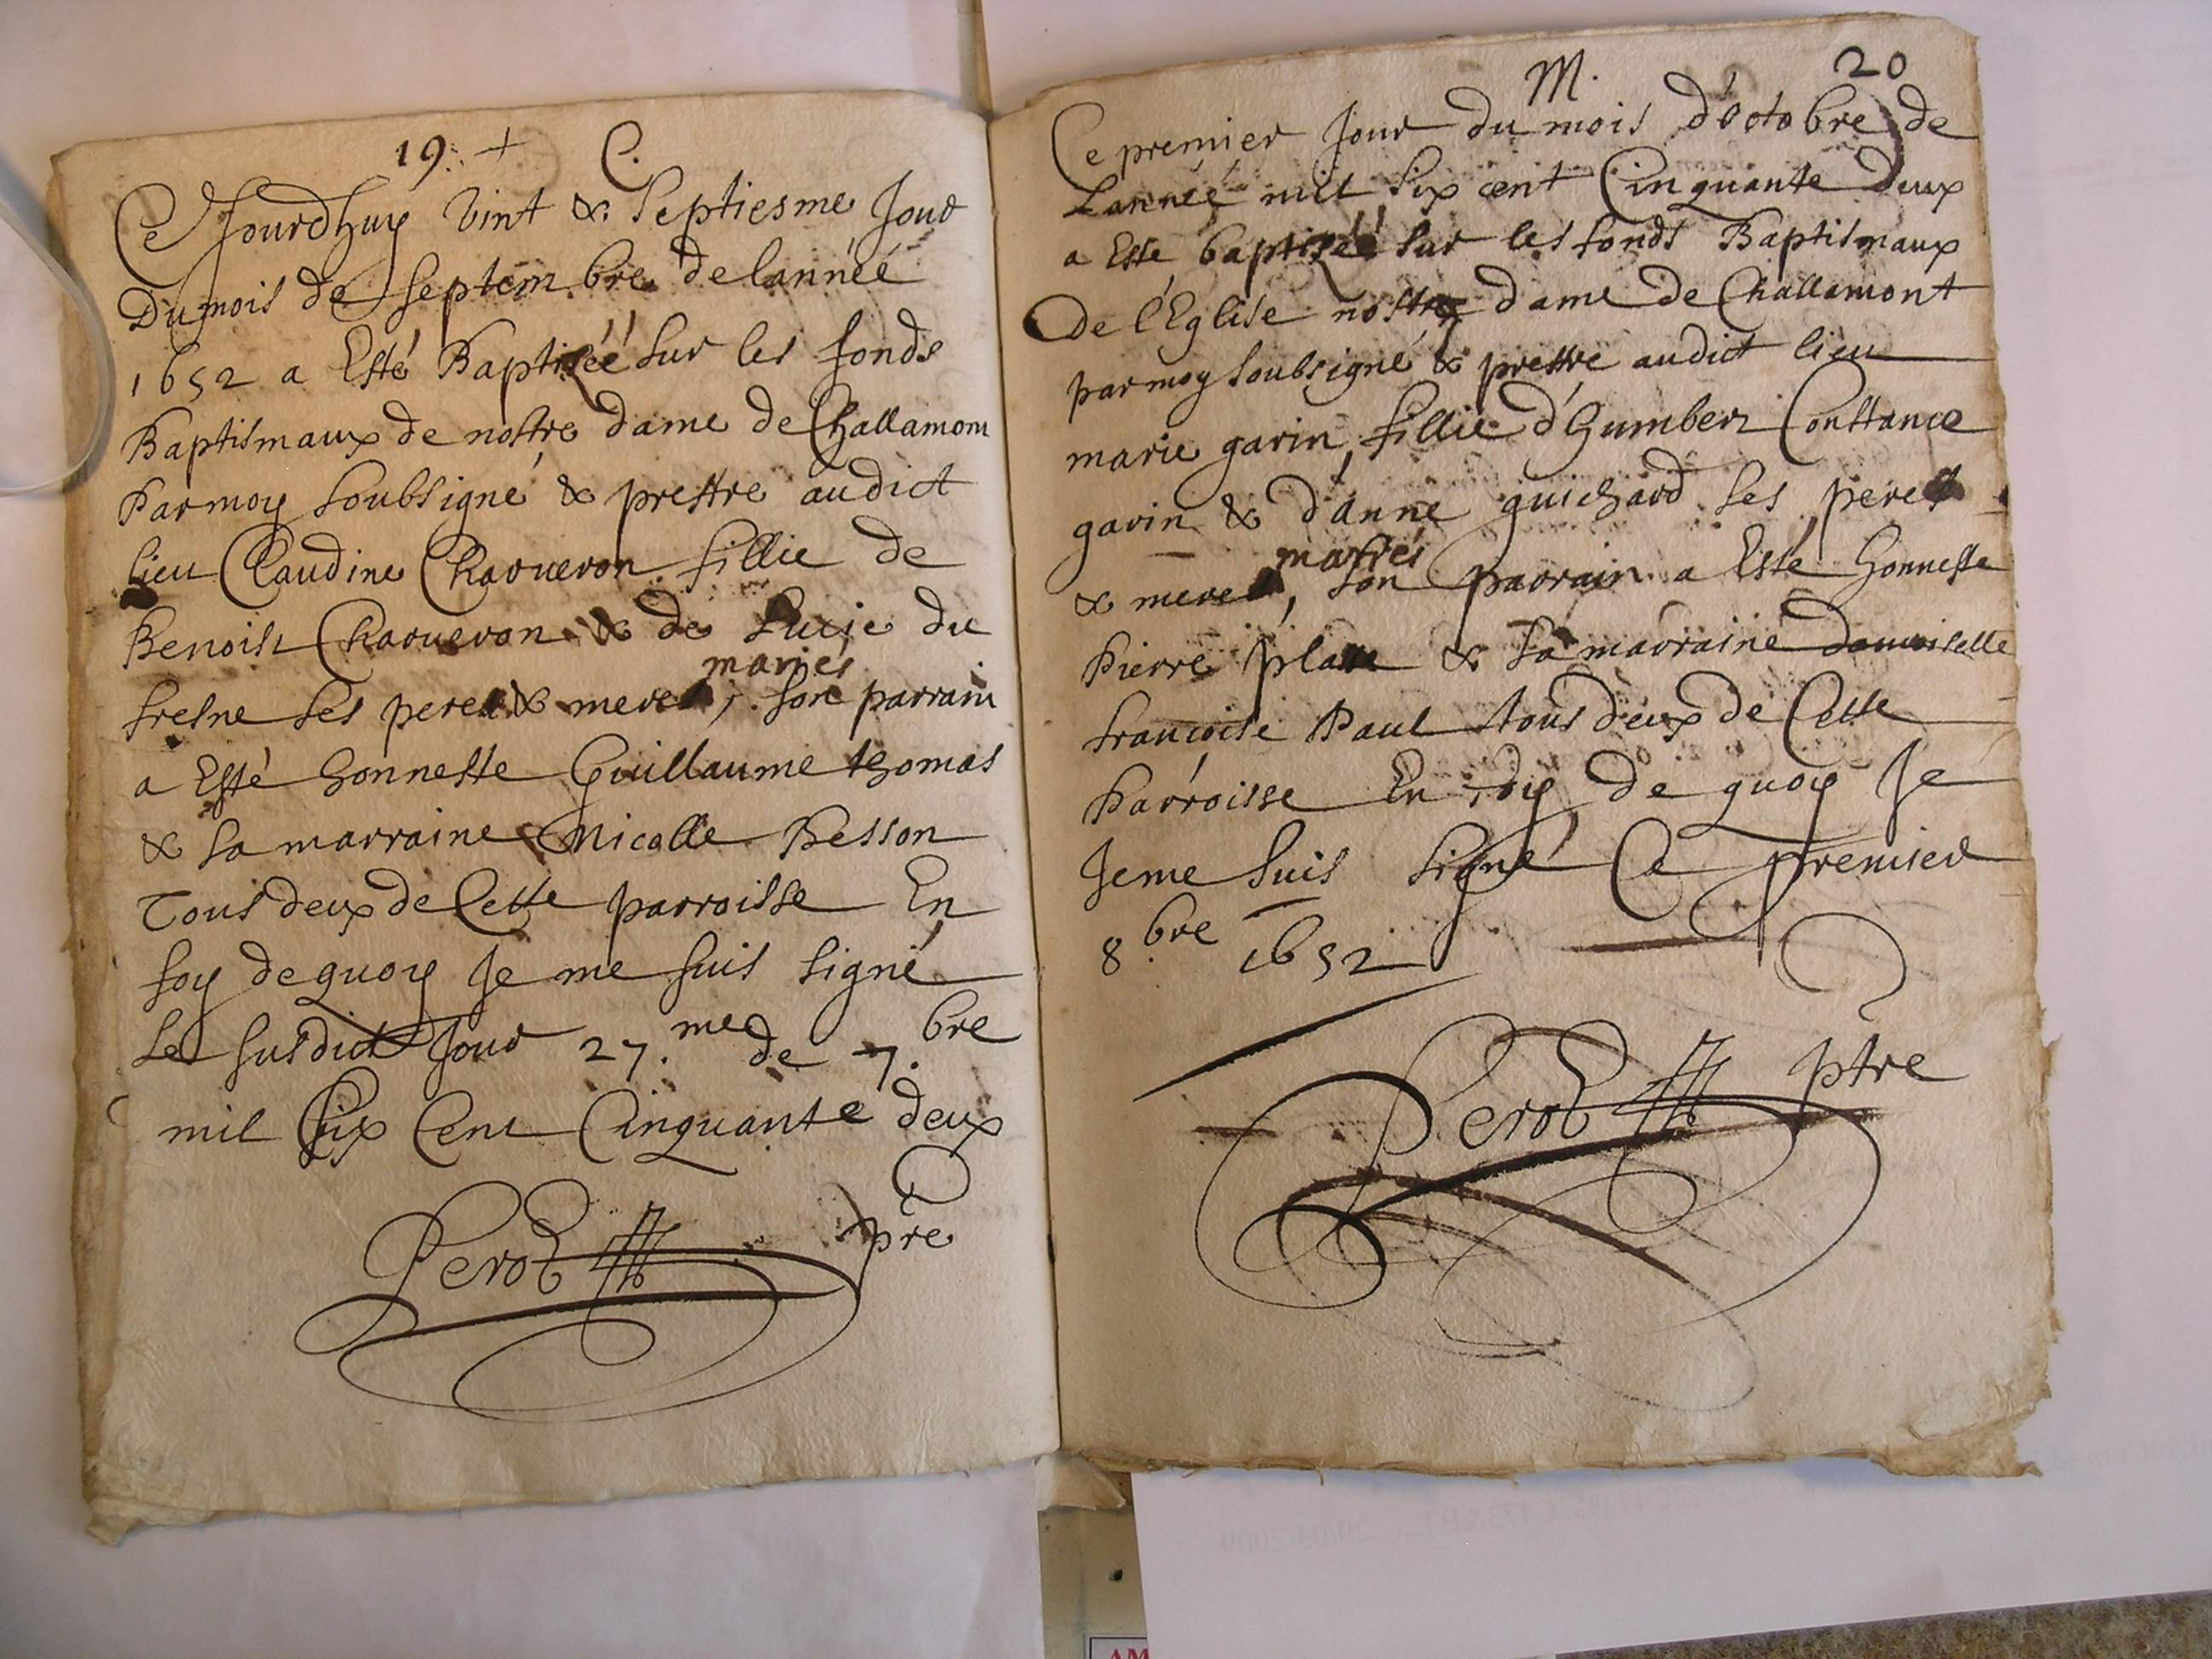 19. + C.
Ce Jourdhuy vint & septiesme Jour
Du mois de septembre de lannéé
1652 a Esté Baptiséé sur les fonds
Baptismaux de nostre dame de Challamont
Par moy soubsigné & prestre audict
lieu Claudine Charveron fillie de
Benoist Charveron & de Lucie du
mariés
fresne ses pere & mere, son parrain
a Esté honneste Guillaume thomas
& sa marraine Nicolle Besson
Tous deux de Cette parroisse En
foy de quoy Je me suis signé
Le susdict Jour 27.me de 7.bre
mil Six Cent Cinquante deux
Perod pre
M. 20
Ce premier Jour du mois d'octobre de
Lannéé mil six cent Cinquante deux
a Este baptiséé sur les fonds Baptismaux
De l'Eglise nostre dame de Challamont
par moy soubsigné & prestre audict lieu
marie garin, fillie d'humbert Constance
garin & d'anne guichard ses pere
mariés
& mere, son parrain a Esté honneste
Pierre & sa marraine damoiselle
francoise Paul tous deux de Cette
Parroisse En foy de quoy Je
Je me suis signé Ce premier
8.bre 1652
Perod ptre
AM